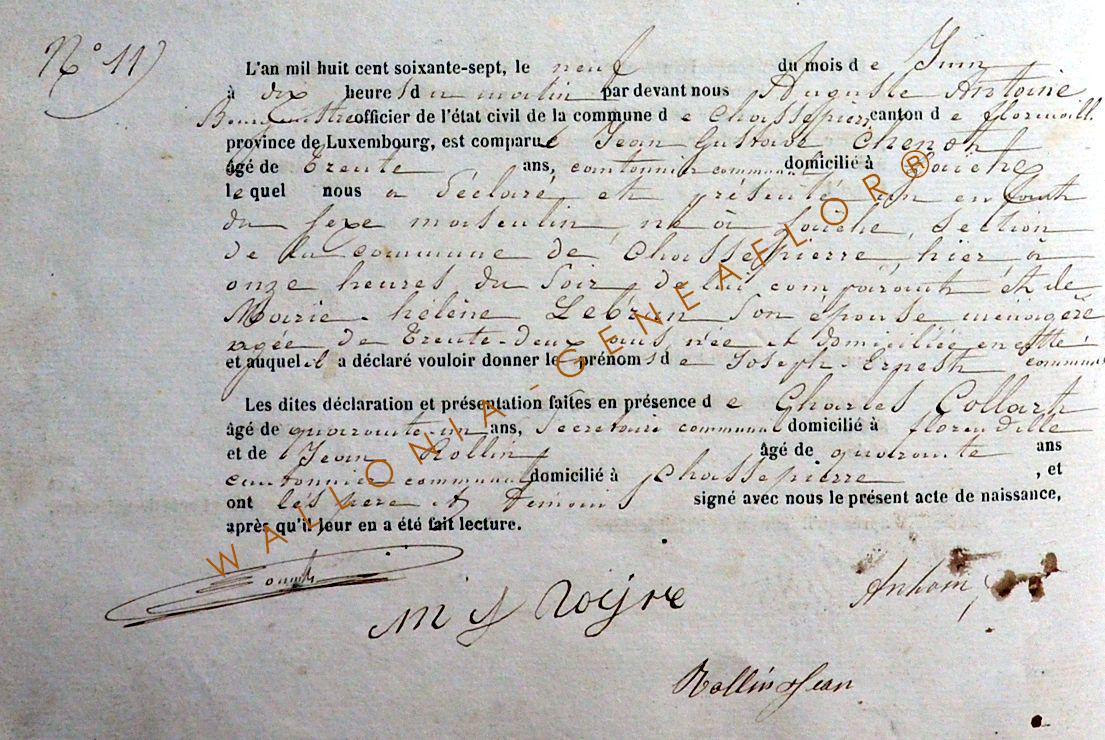 N° 11)
L'an mil huit cent soixante-sept, le neuf du mois de Juin
à dix heures du matin par devant nous Auguste Antoine
Bourgmestre officier de l'état civil de la commune de Chassepierre canton de florenville
province de Luxembourg, est comparu Jean Gustave
âgé de Trente ans, cantonnier communal domicilié à
lequel nous a déclaré et présenté un enfant
du sexe masculin, né à section
de la commune de Chassepierre, hier, à
onze heures du soir, de lui comparant et de
Marie-hélène Lebrun son épouse ménagère
agée de Trente-deux ans, née et domiciliée en cette
et auquel il a déclaré vouloir donner le prénoms de Joseph-Ernest commune
Les dites déclaration et présentation faites en présence de Charles Collart
âgé de quarante-un ans, Secrétaire communal domicilié à florenville
et de Jean Rollin âgé de quarante ans
cantonnier communal domicilié à Chassepierre, et
ont les père et témoins signé avec nous le présent acte de naissance,
après qu'il leur en a été fait lecture.
Rollin Jean
WALLONIA-GENEAFLOR®